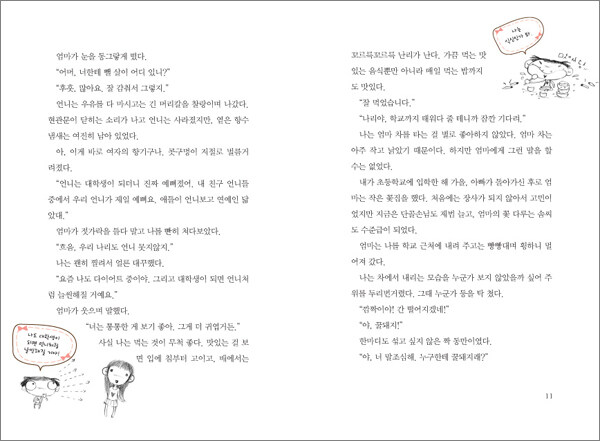 엄마가 눈을 동그랗게 떴다.
“어머, 너한테 뺄 살이 어디 있니?”
“후훗, 많아요. 잘 감춰서 그렇지.”
언니는 우유를 다 마시고는 긴 머리칼을 찰랑이며 나갔다.
현관문이 닫히는 소리가 나고 언니는 사라졌지만, 옅은 향수
냄새는 여전히 남아 있었다.
아, 이게 바로 여자의 향기구나. 콧구멍이 저절로 벌름거
려졌다.
“언니는 대학생이 되더니 진짜 예뻐졌어. 내 친구 언니들
중에서 우리 언니가 제일 예뻐요. 애들이 언니보고 연예인 닮
았대.”
엄마가 젓가락을 들다 말고 나를 빤히 쳐다보았다.
“흐음, 우리 나리도 언니 못지않지.”
나는 괜히 찔려서 얼른 대꾸했다.
“요즘 나도 다이어트 중이야. 그리고 대학생이 되면 언니처
럼 늘씬해질 거예요.”
엄마가 웃으며 말했다.
“너는 통통한 게 보기 좋아. 그게 더 귀엽거든.”
사실 나는 먹는 것이 무척 좋다. 맛있는 걸 보
면 입에 침부터 고이고, 배에서는
나도 대학생이
되면 언니처럼
날씬해질 거야!
꼬르륵꼬르륵 난리가 난다. 가끔 먹는 맛
있는 음식뿐만 아니라 매일 먹는 밥까지
도 맛있다.
“잘 먹었습니다.”
“나리야, 학교까지 태워다 줄 테니까 잠깐 기다려.”
나는 엄마 차를 타는 걸 별로 좋아하지 않았다. 엄마 차는
아주 작고 낡았기 때문이다. 하지만 엄마에게 그런 말을 할
수는 없었다.
내가 초등학교에 입학한 해 가을, 아빠가 돌아가신 후로 엄
마는 작은 꽃집을 했다. 처음에는 장사가 되지 않아서 고민이
었지만 지금은 단골손님도 제법 늘고, 엄마의 꽃 다루는 솜씨
도 수준급이 되었다.
엄마는 나를 학교 근처에 내려 주고는 빵빵대며 휭하니 멀
어져 갔다.
나는 차에서 내리는 모습을 누군가 보지 않았을까 싶어 주
위를 두리번거렸다. 그때 누군가 등을 탁 쳤다.
“깜짝이야! 간 떨어지겠네!”
“야, 꿀돼지!”
한마디도 섞고 싶지 않은 짝 동만이었다.
“야, 너 말조심해. 누구한테 꿀돼지래?”
11